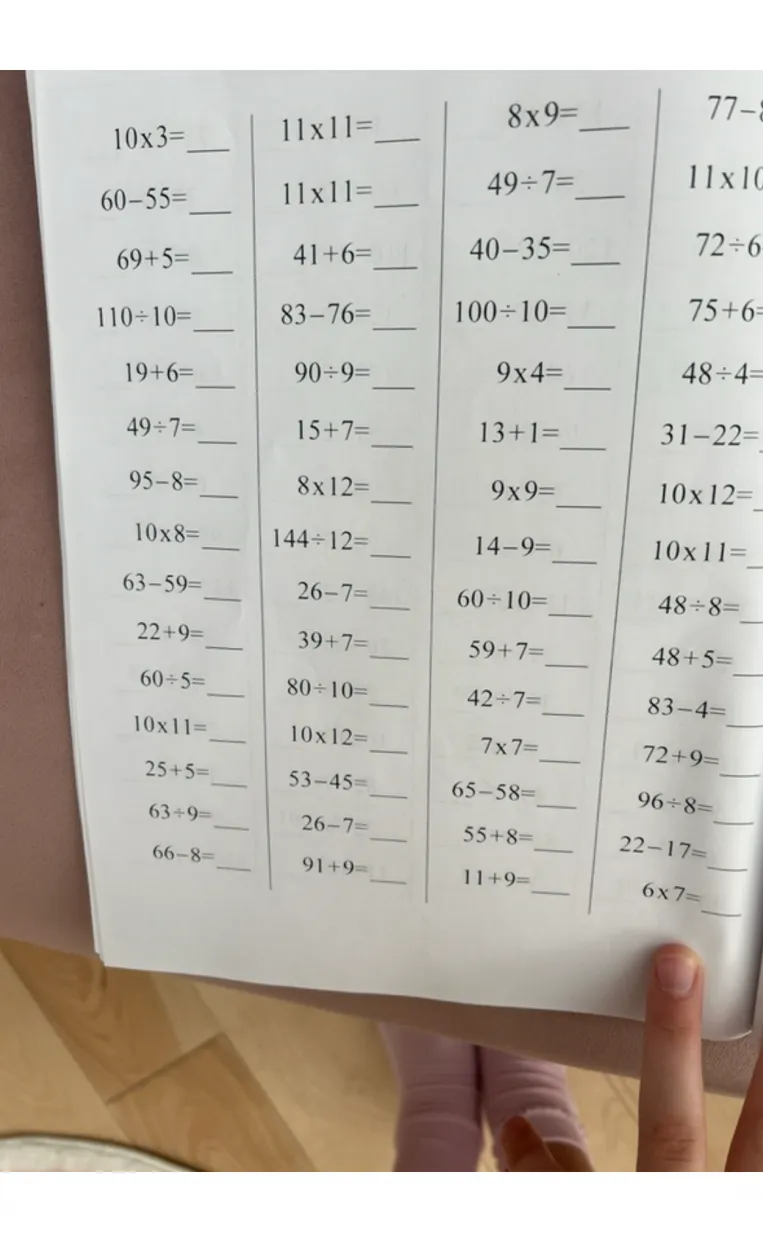 10x3=___
60−55=___
69+5=___
110÷10=___
19+6=___
49÷7=___
95−8=___
10x8=___
63−59=___
22+9=___
60÷5=___
10x11=___
25+5=___
63÷9=___
66−8=___
11x11=___
11x11=___
41+6=___
83−76=___
90÷9=___
15+7=___
8x12=___
144÷12=___
26−7=___
39+7=___
80÷10=___
10x12=___
53−45=___
26−7=___
91+9=___
8x9=___
49÷7=___
40−35=___
100÷10=___
9x4=___
13+1=___
9x9=___
14−9=___
60÷10=___
59+7=___
42÷7=___
7x7=___
65−58=___
55+8=___
11+9=___
77−
11x10
72÷6
75+6=
48÷4=
31−22=_
10x12=_
10x11=_
48÷8=__
48+5=___
83−4=___
72+9=___
96÷8=___
22−17=___
6x7=___